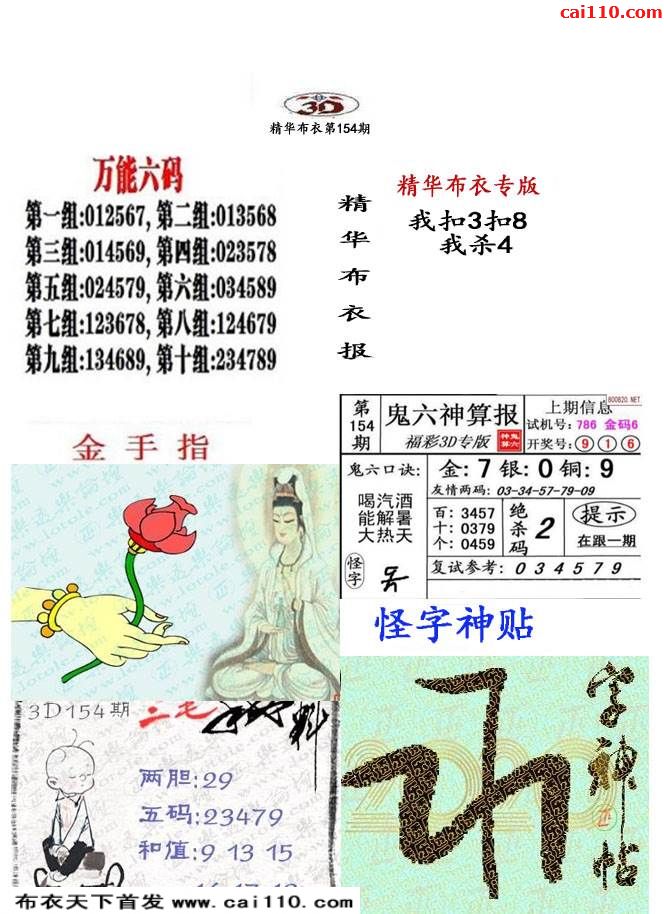 cai110.com
3D
精华布衣第154期
万能六码
第一组:012567, 第二组:013568
第三组:014569, 第四组:023578
第五组:024579, 第六组:034589
第七组:123678, 第八组:124679
第九组:134689, 第十组:234789
精华布衣报
精华布衣专版
我扣3扣8
我杀4
金手指
第154期
鬼六神算报
福彩3D专版
上期信息
800820.NET
试机号: 786 金码6
开奖号: 9 1 6
鬼六口诀:
喝汽酒
能解暑
大热天
怪字
金: 7 银: 0 铜: 9
友情两码: 03-34-57-79-09
百: 3457
十: 0379
个: 0459
绝杀码 2
提示
在跟一期
复试参考: 0 3 4 5 7 9
怪字神贴
3D154期
二毛
料
两胆:29
五码:23479
和值:9 13 15
字神帖
2020
布衣天下首发 www.cai110.com